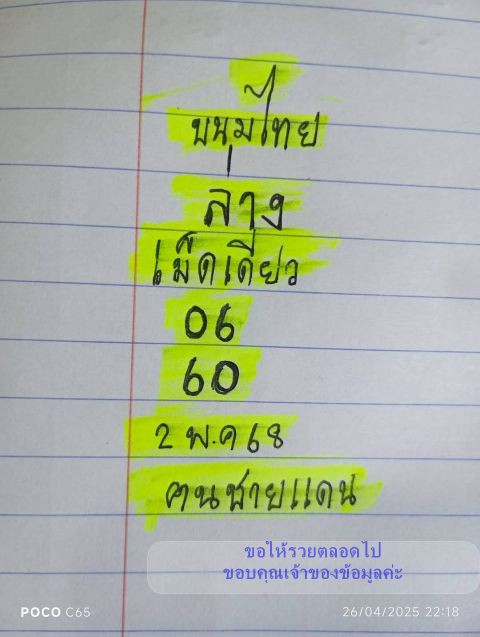 บนุ่มไทย
ล่าง
เม็ดเดียว
06
60
2 พ.ค 68
คนชายแดน
ขอให้รวยตลอดไป
ขอบคุณเจ้าของข้อมูลค่ะ
POCO C65
26/04/2025 22:18